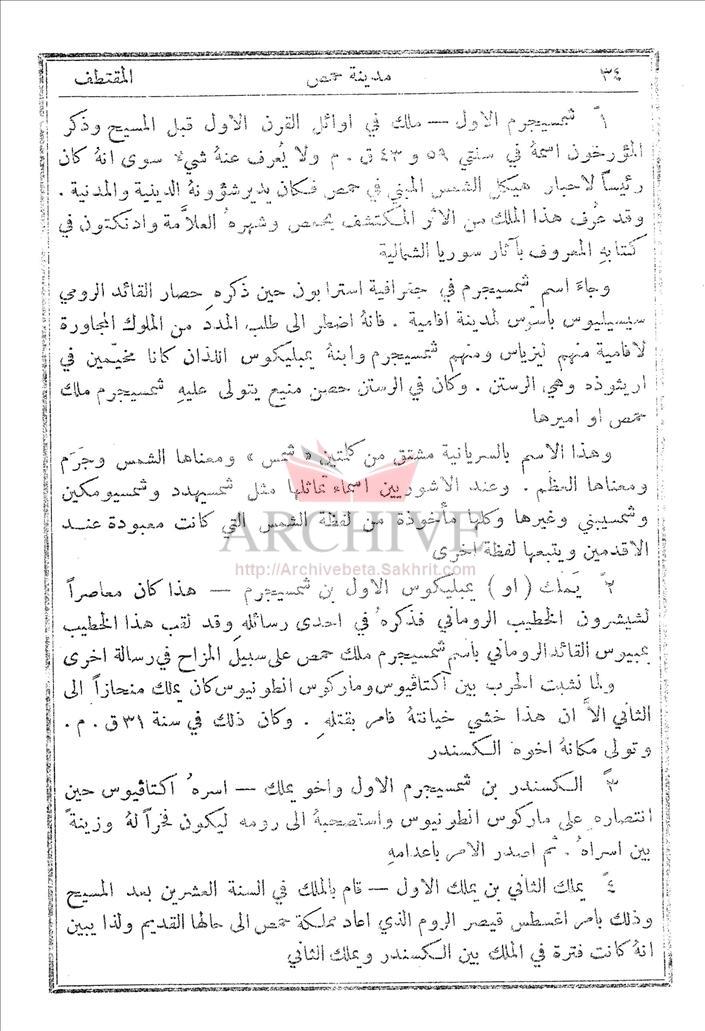 ٣٤ مدينة حمص المقتطف
١ً شمسيجرم الاول — ملك في اوائل القرن الاول قبل المسيح وذكر
المؤرخون اسمهُ في سنتي ٥٩ و ٤٣ ق . م ولا يُعرف عنهُ شيء سوى انهُ كان
رئيساً لاحبار هيكل الشمس المبني في حمص فكان يدير شؤونهُ الدينية والمدنية .
وقد عُرف هذا الملك من الاثر المكتشف بحمص وشهرهُ العلاَّمة وادنكتون في
كتابهِ المعروف بآثار سوريا الشمالية
وجاءَ اسم شمسيجرم في جغرافية استرابون حين ذكرهِ حصار القائد الرومي
سيسيليوس باسّوس لمدينة افامية . فانهُ اضطر الى طلب المدد من الملوك المجاورة
لافامية منهم ليزياس ومنهم شمسيجرم وابنهُ يمبليكوس اللذان كانا مخيّمين في
اريثوذه وهي الرستن . وكان في الرستن حصن منيع يتولى عليهِ شمسيجرم ملك
حمص او اميرها
وهذا الاسم بالسريانية مشتق من كلمتين « شمس » ومعناها الشمس وجَرَم
ومعناها العظم . وعند الاشوريين اسماء تماثلها مثل شمسيهدد وشمسيومكين
وشمسيبني وغيرها وكلها مأخوذة من لفظة الشمس التي كانت معبودة عند
الاقدمين ويتبعها لفظة اخرى
ARCHIVE
http://Archivebeta.Sakhrit.com
٢ً يَملك ( او ) يمبليكوس الاول بن شمسيجرم — هذا كان معاصراً
لشيشرون الخطيب الروماني فذكرهُ في احدى رسائلهِ وقد لقب هذا الخطيب
بمبيوس القائد الروماني باسم شمسيجرم ملك حمص على سبيل المزاح في رسالة اخرى
ولما نشبت الحرب بين اكتاڤيوس وماركوس انطونيوس كان يملك منحازاً الى
الثاني الاَّ ان هذا خشي خيانتهُ فامر بقتلهِ . وكان ذلك في سنة ٣١ ق . م .
وتولى مكانهُ اخوهُ الكسندر
٣ً الكسندر بن شمسيجرم الاول واخو يملك — اسرهُ اكتاڤيوس حين
انتصارهِ على ماركوس انطونيوس واستصحبهُ الى رومه ليكون فخراً لهُ وزينةً
بين اسراهُ . ثم اصدر الامر باعدامهِ
٤ً يملك الثاني بن يملك الاول — قام بالملك في السنة العشرين بعد المسيح
وذلك بامر اغسطس قيصر الروم الذي اعاد مملكة حمص الى حالها القديم ولذا يبين
انهُ كانت فترة في الملك بين الكسندر ويملك الثاني